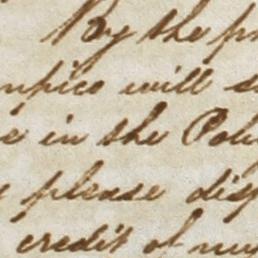 By the pr
mpico will s
e in the Pol
please disp
credit of my